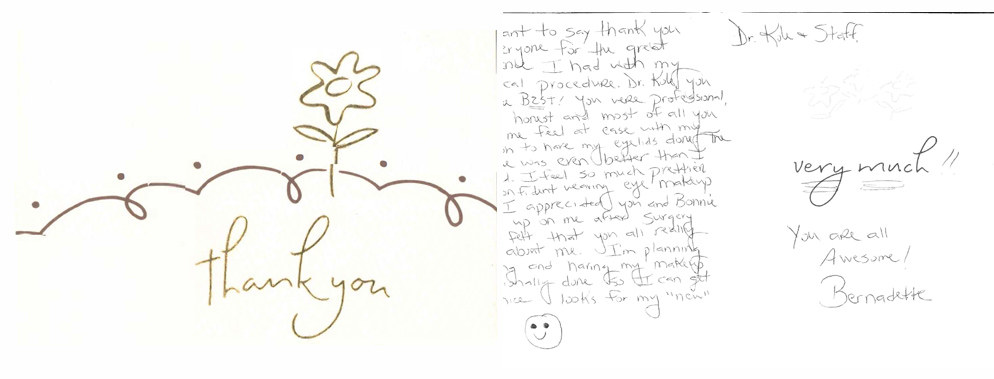 thank you
ant to say thank you
eryone for the great
I had with my
cal procedure. Dr. Kole, you
BEST! You were professional,
honest and most of all you
me feel at ease with my
to have my eyelids done. The
was even better than I
d. I feel so much prettier
onfident wearing eye makeup.
I appreciated you and Bonnie
up on me after surgery
felt that you all really
about me. I'm planning
and having my makeup
onally done so I can get
looks for my "new"
Dr. Kole & Staff,
very much!!
You are all
Awesome!
Bernadette